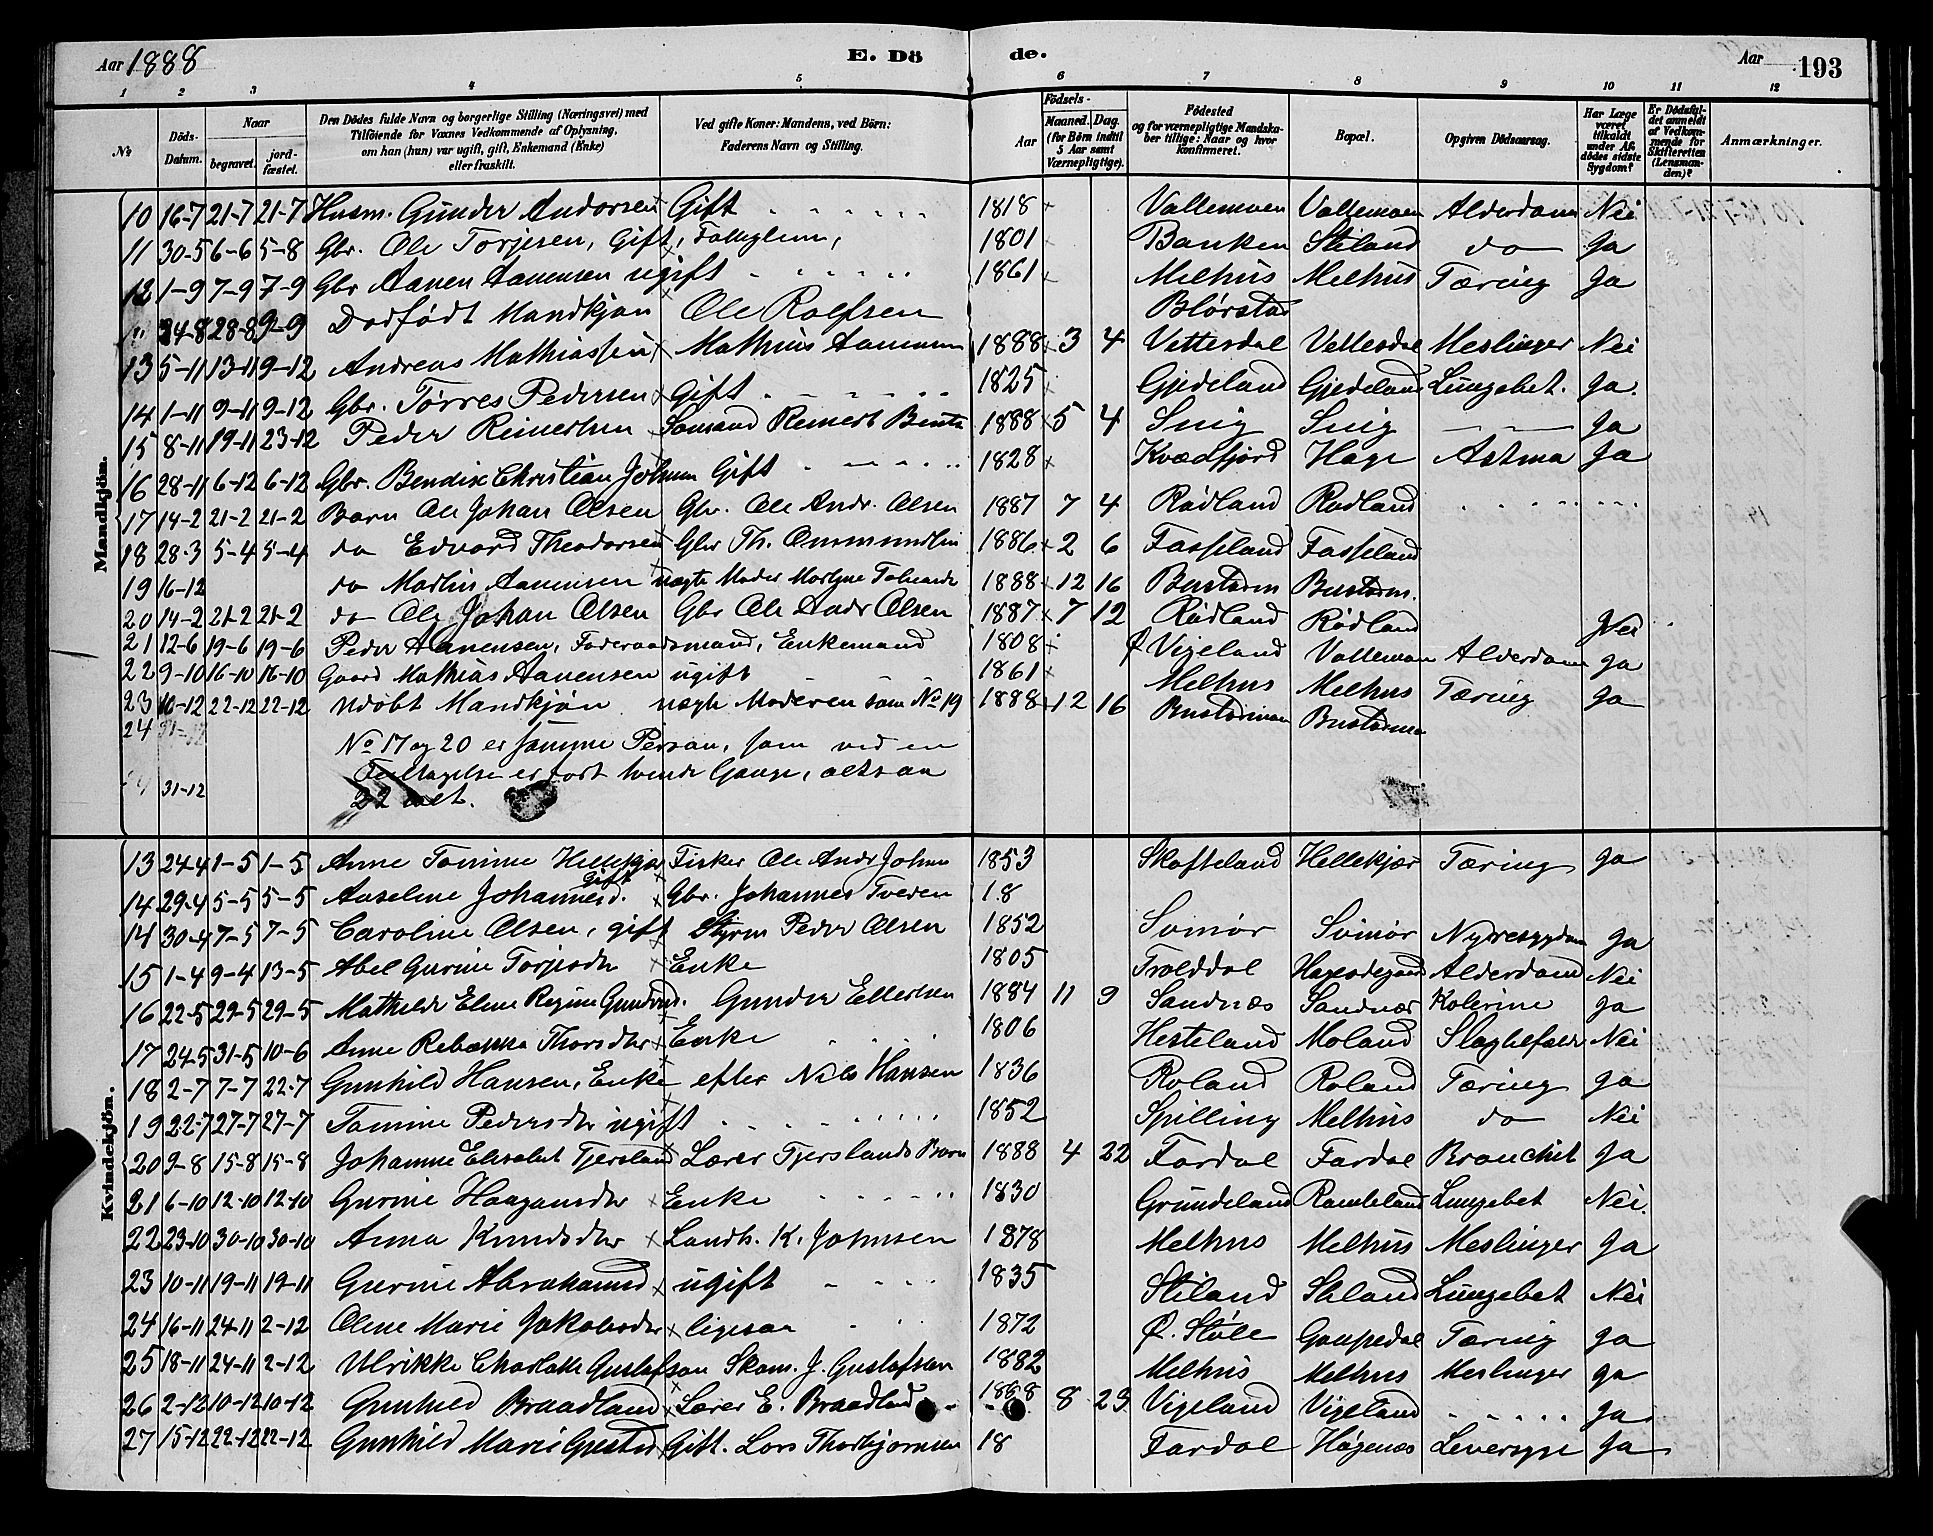 Aar 1888 E. Dö de. Aar 193
1 2 3 4 5 6 7 8 9 10 11 12
No. Döds-Datum. Naar begravet. jordfæstet. Den Dödes fulde Navn og borgerlige Stilling (Næringsvei) med Tilföiende for Voxnes Vedkommende af Oplysning, om han (hun) var ugift, gift, Enkemand (Enke) eller fraskilt. Ved gifte Koner: Mandens, ved Börn: Faderens Navn og Stilling. Födsels- Aar Maaned. Dag. (for Börn indtil 5 Aar samt Værnepligtige). Födested og for værnepligtige Mandskaber tillige: Naar og hvor konfirmeret. Bopæl. Opgiven Dödsaarsag. Har Læge været tilkaldt under Afdödes sidste Sygdom? Er Dödsfaldet anmeldt af Vedkommende for Skifteretten (Lensmanden)? Anmærkninger.
Mandkjön.
10 16-7 21-7 21-7 Husm. Gunder Andorsen Gift 1818 Vallemoen Vallemoen Alderdom Nei
11 30-5 6-6 5-8 Gbr. Ole Torjesen, Gift, 1801 Banken Stiland do Ja
12 1-9 7-9 7-9 Gbr Aanen Aanensen ugift 1861 Melhus Melhus Tæring Ja
24-8 28-8 9-9 Dødfødt Mandkjøn Ole Rolfsen Blørstad
13 5-11 13-11 9-12 Andreas Mathiassen Mathias Aanensen 1888 3 4 Vettesdal Vettesdal Meslinger Nei
14 1-11 9-11 9-12 Gbr. Tørres Pedersen Gift 1825 Gjedeland Gjedeland Lungebet. Ja.
15 8-11 19-11 23-12 Peder Reinertsen Sømand Reinert 1888 5 4 Snig Snig Ja
16 28-11 6-12 6-12 Gbr. Bendix Christian Johnsen Gift 1828 Kvædfjord Hage Astma Ja
17 14-2 21-2 21-2 Barn Ole Johan Olsen Gbr. Ole Andr. Olsen 1887 7 4 Rødland Rødland
18 28-3 5-4 5-4 do Edvard Theodorsen Gbr Th. Ommundsen 1886 2 6 Fasseland Fasseland
19 16-12 do Martin Aanensen uægte Moder 1888 12 16
20 14-2 21-2 21-2 do Ole Johan Olsen Gbr Ole Andr Olsen 1887 7 12 Rødland Rødland
21 12-6 19-6 19-6 Peder Aanensen, Føderaadsmand, Enkemand 1808 Ø Vigeland Vallemoen Alderdom Nei
22 9-10 16-10 16-10 Gaard Mathias Aanensen ugift 1861 Melhus Melhus Tæring Ja
23 16-12 22-12 22-12 Udøbt Mandkjøn uægte Moderen som No 19 1888 12 16 Ja
24 31-12
No 17 og 20 er samme Person, som ved en
Feiltagelse er ført tvende Gange, altsaa
31-12 22 ialt.
Kvindekjön.
13 24-4 1-5 1-5 Anne Tomine Hellekjær Fisker Ole Andr Johnsen 1853 Skofteland Hellekjær Tæring Ja
14 29-4 5-5 5-5 Anseline Johannesd. gift Gbr. Johannes Tveden 18
14 30-4 7-5 7-5 Caroline Olsen, gift Styrm Peder Olsen 1852 Svinør Svinør Nyresygdom Ja
15 1-4 9-4 13-5 Abel Gurine Torjesdtr Enke 1805 Trolddal Hageødegaard Alderdom Nei
16 22-5 29-5 29-5 Mathilde Elene Regine Gundersd. Gunder Ellertsen 1884 11 9 Sandnæs Sandnæs Kolerine Ja
17 24-5 31-5 10-6 Anne Rebekka Thorsdtr Enke 1806 Hesteland Moland Slagtilfælde Nei
18 2-7 7-7 22-7 Gunhild Hansen, Enke efter Nils Hansen 1836 Roland Roland Tæring Ja
19 22-7 27-7 27-7 Tomine Pedersdtr ugift 1852 Spilling Melhus do Nei
20 9-8 15-8 15-8 Johanne Elisabet Tjersland Lærer Tjerslands Barn 1888 4 22 Fardal Fardal Bronchit Ja
21 6-10 12-10 12-10 Gurine Haagensdtr Enke 1830 Grundeland Lungebet Nei.
22 23-10 30-10 30-10 Anna Knudsdtr Landh. K. Johnsen 1878 Melhus Melhus Meslinger Ja
23 10-11 19-11 19-11 Gurine Abrahamsd ugift 1835 Stiland Stiland Lungebet Nei
24 16-11 24-11 2-12 Olene Marie Jakobsdtr ligesaa 1872 Ø. Støle Gaupedal Tæring Ja
25 18-11 24-11 2-12 Ulrikke Charlotte Gustafson Skom. J. Gustafson 1882 Melhus Melhus Meslinger Ja
26 2-12 10-12 10-12 Gunhild Braadland Lærer E. Braadland 8 23 Vigeland Vigeland Ja
27 15-12 22-12 22-12 Gunhild Marie Gift. Lars Thorbjørnsen 18 Fardal Høgenæs Leversyge Ja